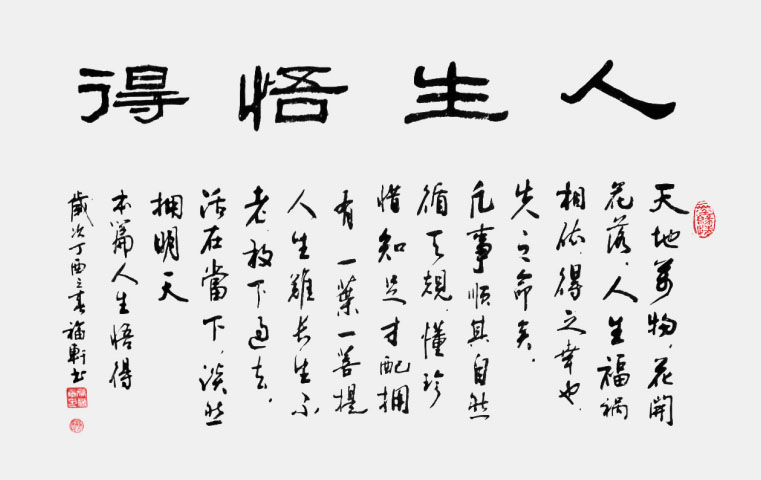 人生悟得
天地萬物，花開
花落，人生福禍
相依，得之幸也，
失之命矣。
凡事順其自然
循天規，懂珍
惜知足才配拥
有一葉一菩提
人生難長生不
老，放下過去，
活在當下，淡然
拥明天
本篇人生悟得
歲次丁酉之春福軒书